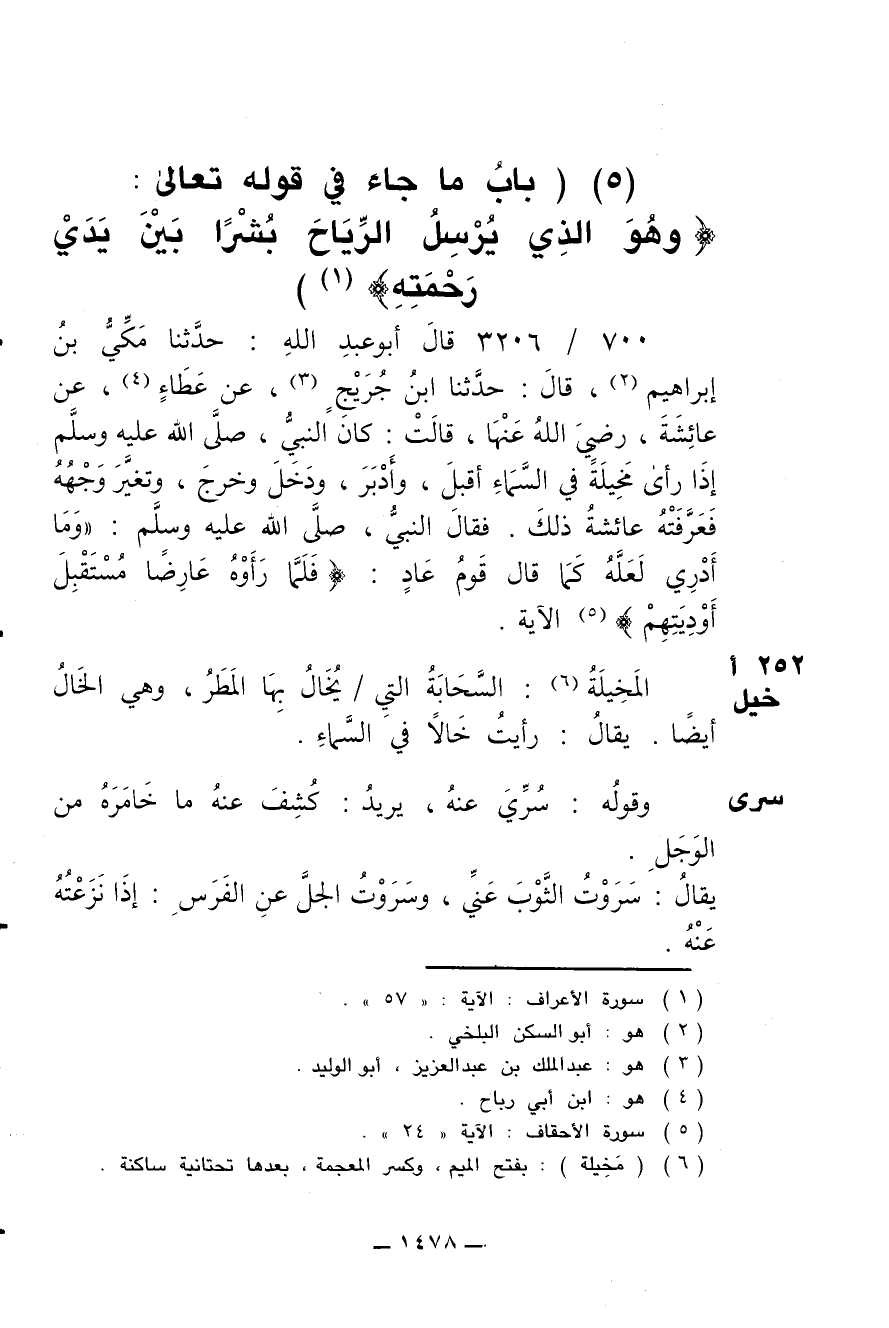 (٥) ( بابُ ما جاءَ في قوله تعالىٰ :
﴿ وهُوَ الذِي يُرْسِلُ الرِّيَاحَ بُشْرًا بَيْنَ يَدَيْ
رَحْمَتِهِ﴾ (١) )
٧٠٠ / ٣٢٠٦ قالَ أبوعبدِ اللهِ : حدَّثنا مَكِّيُّ بنُ
إبراهيم (٢) ، قالَ : حدَّثنا ابنُ جُرَيْجٍ (٣) ، عن عَطَاءٍ (٤) ، عن
عائِشَةَ ، رضيَ اللهُ عَنْهَا ، قالَتْ : كانَ النبيُّ ، صلَّى الله عليه وسلَّم
إذَا رأىٰ مَخِيلَةً في السَّمَاءِ أقبلَ ، وأَدْبَرَ ، ودَخَلَ وخرجَ ، وتغيَّرَ وَجْهُهُ
فَعَرَّفَتْهُ عائشةُ ذلكَ . فقالَ النبيُّ ، صلَّى الله عليه وسلَّم : «وَمَا
أَدْرِي لَعَلَّهُ كَمَا قال قَومُ عَادٍ : ﴿ فَلَمَّا رَأَوْهُ عَارِضًا مُسْتَقْبِلَ
أَوْدِيَتِهِمْ ﴾ (٥) الآية .
٢٥٢ أ
خيل
المَخِيلَةُ (٦) : السَّحَابَةُ التيِ / يُخَالُ بِهَا المَطَرُ ، وهي الخَالُ
أيضًا . يقالُ : رأيتُ خَالًا في السَّماءِ .
سرى
وقولُه : سُرِّيَ عنهُ ، يريدُ : كُشِفَ عنهُ ما خَامَرَهُ من
الوَجَلِ .
يقالُ : سَرَوْتُ الثَّوْبَ عَنيِّ ، وسَرَوْتُ الجلَّ عنِ الفَرَسِ : إذَا نَزَعْتُهُ
عَنْهُ .
( ١ ) سورة الأعراف : الآية : « ٥٧ » .
( ٢ ) هو : أبو السكن البلخي .
( ٣ ) هو : عبدالملك بن عبدالعزيز ، أبو الوليد .
( ٤ ) هو : ابن أبي رباح .
( ٥ ) سورة الأحقاف : الآية « ٢٤ » .
( ٦ ) ( مَخِيلة ) : بفتح الميم ، وكسر المعجمة ، بعدها تحتانية ساكنة .
— ١٤٧٨ —